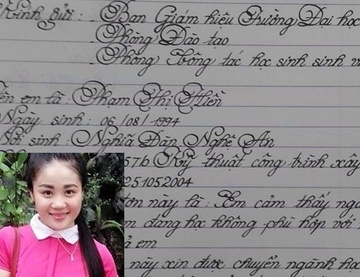 Kính gửi : Ban Giám hiệu Trường Đại học
Phòng Đào tạo
Phòng Công tác học sinh sinh v
ên em là : Phạm Thị Hiền
Ngày sinh : 06/08/1994
Nơi sinh : Nghĩa Đàn, Nghệ An
57b Kỹ thuật công trình xây
251052004
ơn này là : Em cảm thấy ng
m đang học không phù hợp với
ả em
này xin được chuyển ngành họ